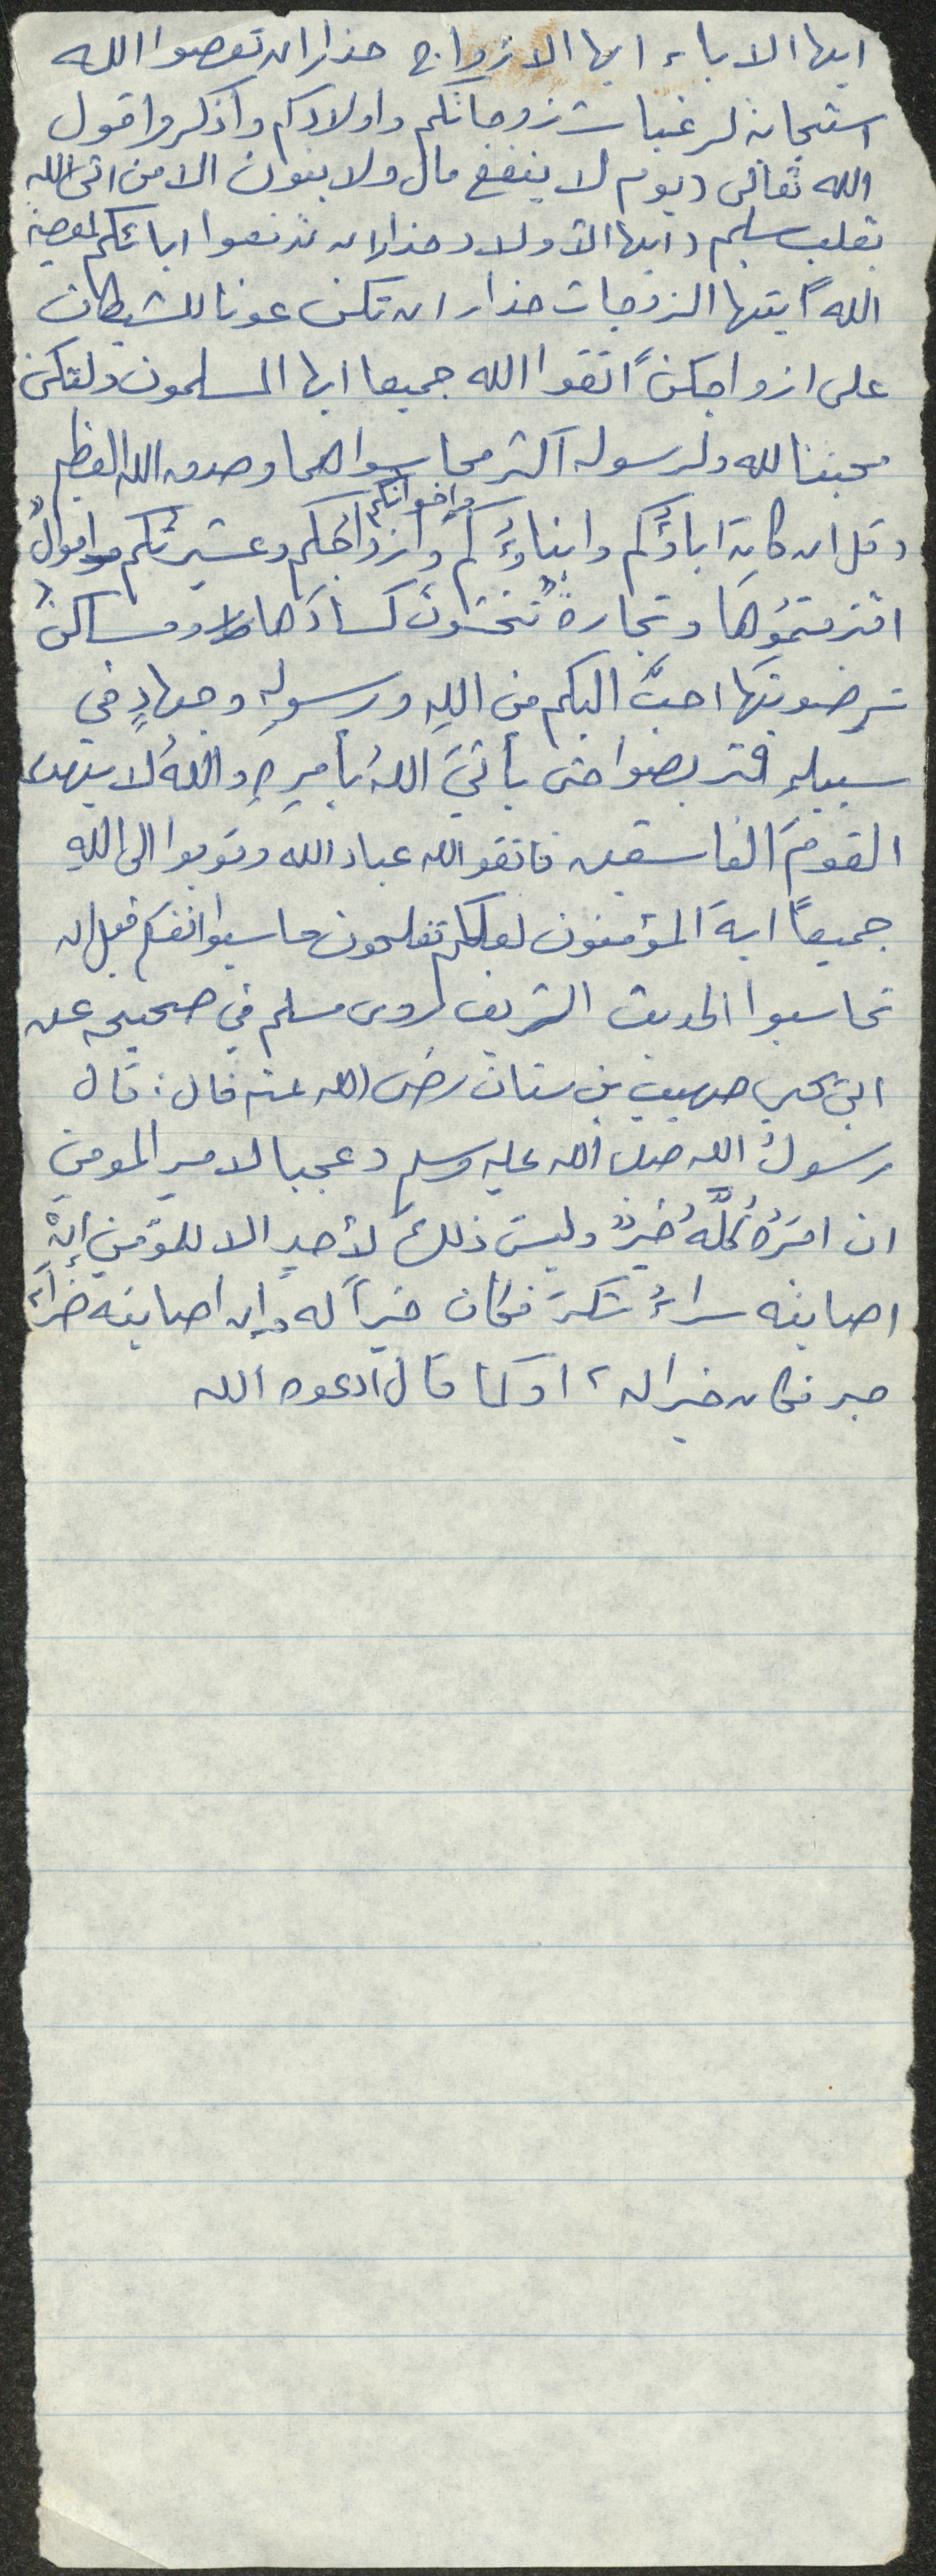 ايها الاباء ايها الازواج حذار ان تعصوا الله
استجابة لرغبات زوجاتكم واولادكم واذكروا قول
الله تعالى (يوم لا ينفع مال ولا بنون الا من اتى الله
بقلب سليم) ايها الاولاد حذار ان تدفعوا ابائكم لمعصية
الله ايتها الزوجات حذار ان تكن عونا للشيطان
على ازواجكن اتقوا الله جميعا ايها المسلمون ولتكن
محبتنا لله ولرسوله اكثر مما سواهما وصدق الله العظيم
(قل ان كان اباؤكم وابناؤكم واخوانكم وازواجكم وعشيرتكم واموالٌ
اقترفتموها وتجارةٌ تخشون كسادَها ومساكنُ
ترضونَها احبَّ اليكم من اللهِ ورسولِهِ وجهادٍ في
سبيلِهِ فتربصوا حتى يأتيَ اللهُ بأمرِهِ واللهُ لا يهدى
القومَ الفاسقين فاتقو الله عباد الله وتوبوا الى الله
جميعاً ايهَ المؤمنون لعلكم تفلحون حاسبوا انفسكم قبل ان
تحاسبوا الحديث الشريف روى مسلم في صحيحه عن
ابي يحيى صهيب بن سنان رضى الله عنه قال: قال
رسولُ الله صلى الله عليه وسلم (عجبا لامر المومن
ان امرَهُ كُلَّهُ خيرٌ وليس ذلك لأحدٍ الا للمؤمن إنْ
اصابته سراءُ شكرَ فكان خيراً له وإن اصابته ضراءُ
صبر فكان خيرا له) او كما قال ادعوه الله